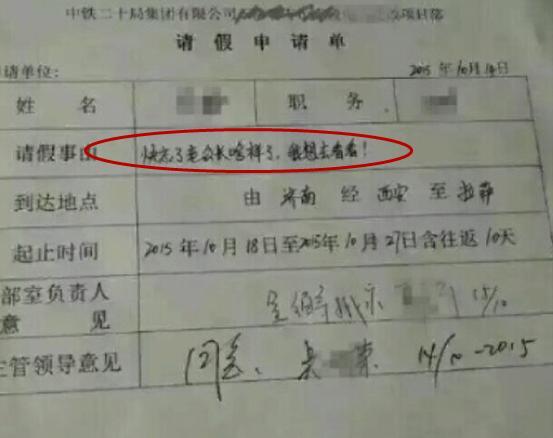 中铁二十局集团有限公司 项目部
请假申请单
请单位： 2015年10月14日
姓名 职务
请假事由 快忘了老公长啥样了，我想去看看！
到达地点 由 济南 经 西安 至 拉萨
起止时间 2015年10月18日至2015年10月27日含往返10天
部室负责人
意见 15/10
主管领导意见 同意、 14/10-2015